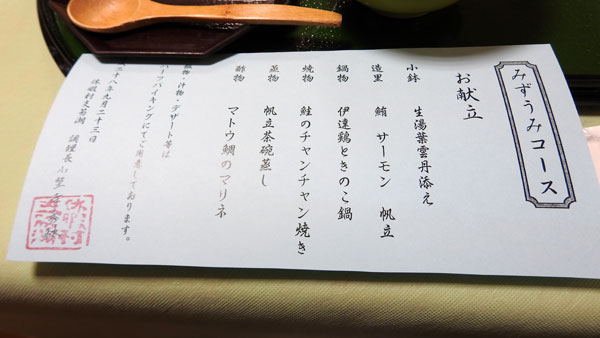 みずうみコース
お献立
小鉢 生湯葉雲丹添え
造里 鮪 サーモン 帆立
鍋物 伊達鶏ときのこ鍋
焼物 鮭のチャンチャン焼き
蒸物 帆立茶碗蒸し
酢物 マトウ鯛のマリネ
飯物・汁物・デザート等は
ハーフバイキングにてご用意しております。
二十八年九月二十三日
休暇村支笏湖 調理長 小笠